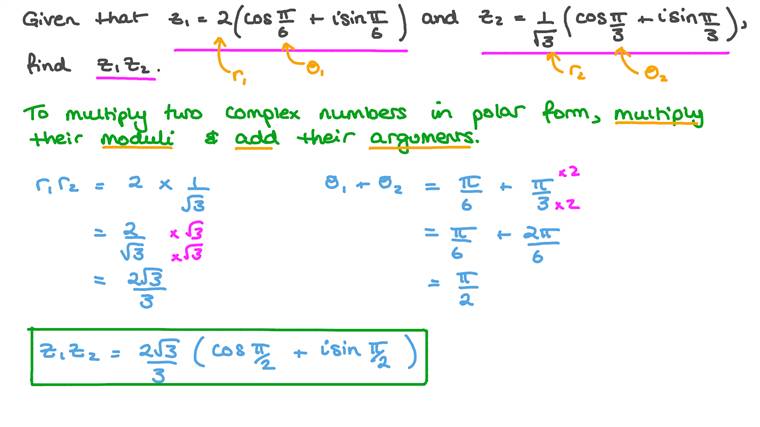 Given that z₁ = 2(cos π/6 + i sin π/6) and z₂ = 1/√3 (cos π/3 + i sin π/3),
find z₁z₂.
r₁ θ₁ r₂ θ₂
To multiply two complex numbers in polar form, multiply
their moduli & add their arguments.
r₁r₂ = 2 × 1/√3
= 2/√3 ×√3 ×√3
= 2√3/3
θ₁ + θ₂ = π/6 + π/3 ×2 ×2
= π/6 + 2π/6
= π/2
z₁z₂ = 2√3/3 (cos π/2 + i sin π/2)